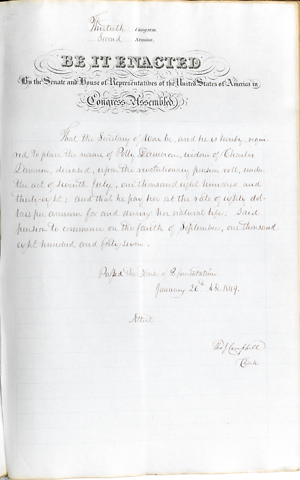 Thirtieth Congress.
Second Session.
BE IT ENACTED
By the Senate and House of Representatives of the United States of America in
Congress Assembled,
That the Secretary of War be, and he is hereby, requi-
red to place the name of Polly Dameron, widow of Charles
Dameron, deceased, upon the revolutionary pension roll, under
the act of seventh July, one thousand eight hundred and
thirty-eight; and that he pay her at the rate of eighty dol-
lars per annum for and during her natural life; Said
pension to commence on the fourth of September, one thousand
eight hundred and forty seven.
Passed the House of Representatives
January 26th 1849.
Attest
Campbell
Clerk